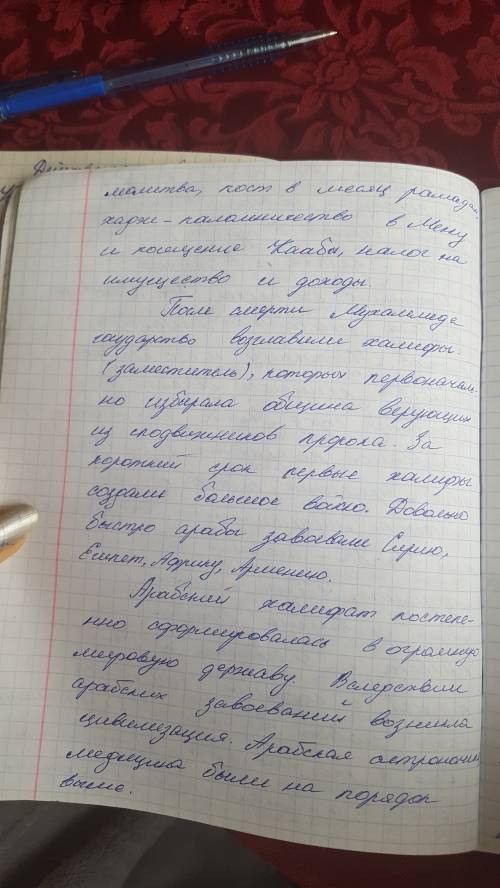 молитва, пост в месяц рамадан,
хадж - паломничество в Мекку
и посещение Каабы, налог на
имущество и доходы.
После смерти Мухаммеда
государство возглавили халифы
(заместитель), которых первоначаль-
но избирала община верующих
из сподвижников пророка. За
короткий срок первые халифы
создали большое войско. Довольно
быстро арабы завоевали Сирию,
Египет, Африку, Армению.
Арабский халифат постепе-
нно сформировалась в огромную
мировую державу. Вследствии
арабских завоеваний возникла
цивилизация. Арабская астрономия
медицина были на порядок
выше.